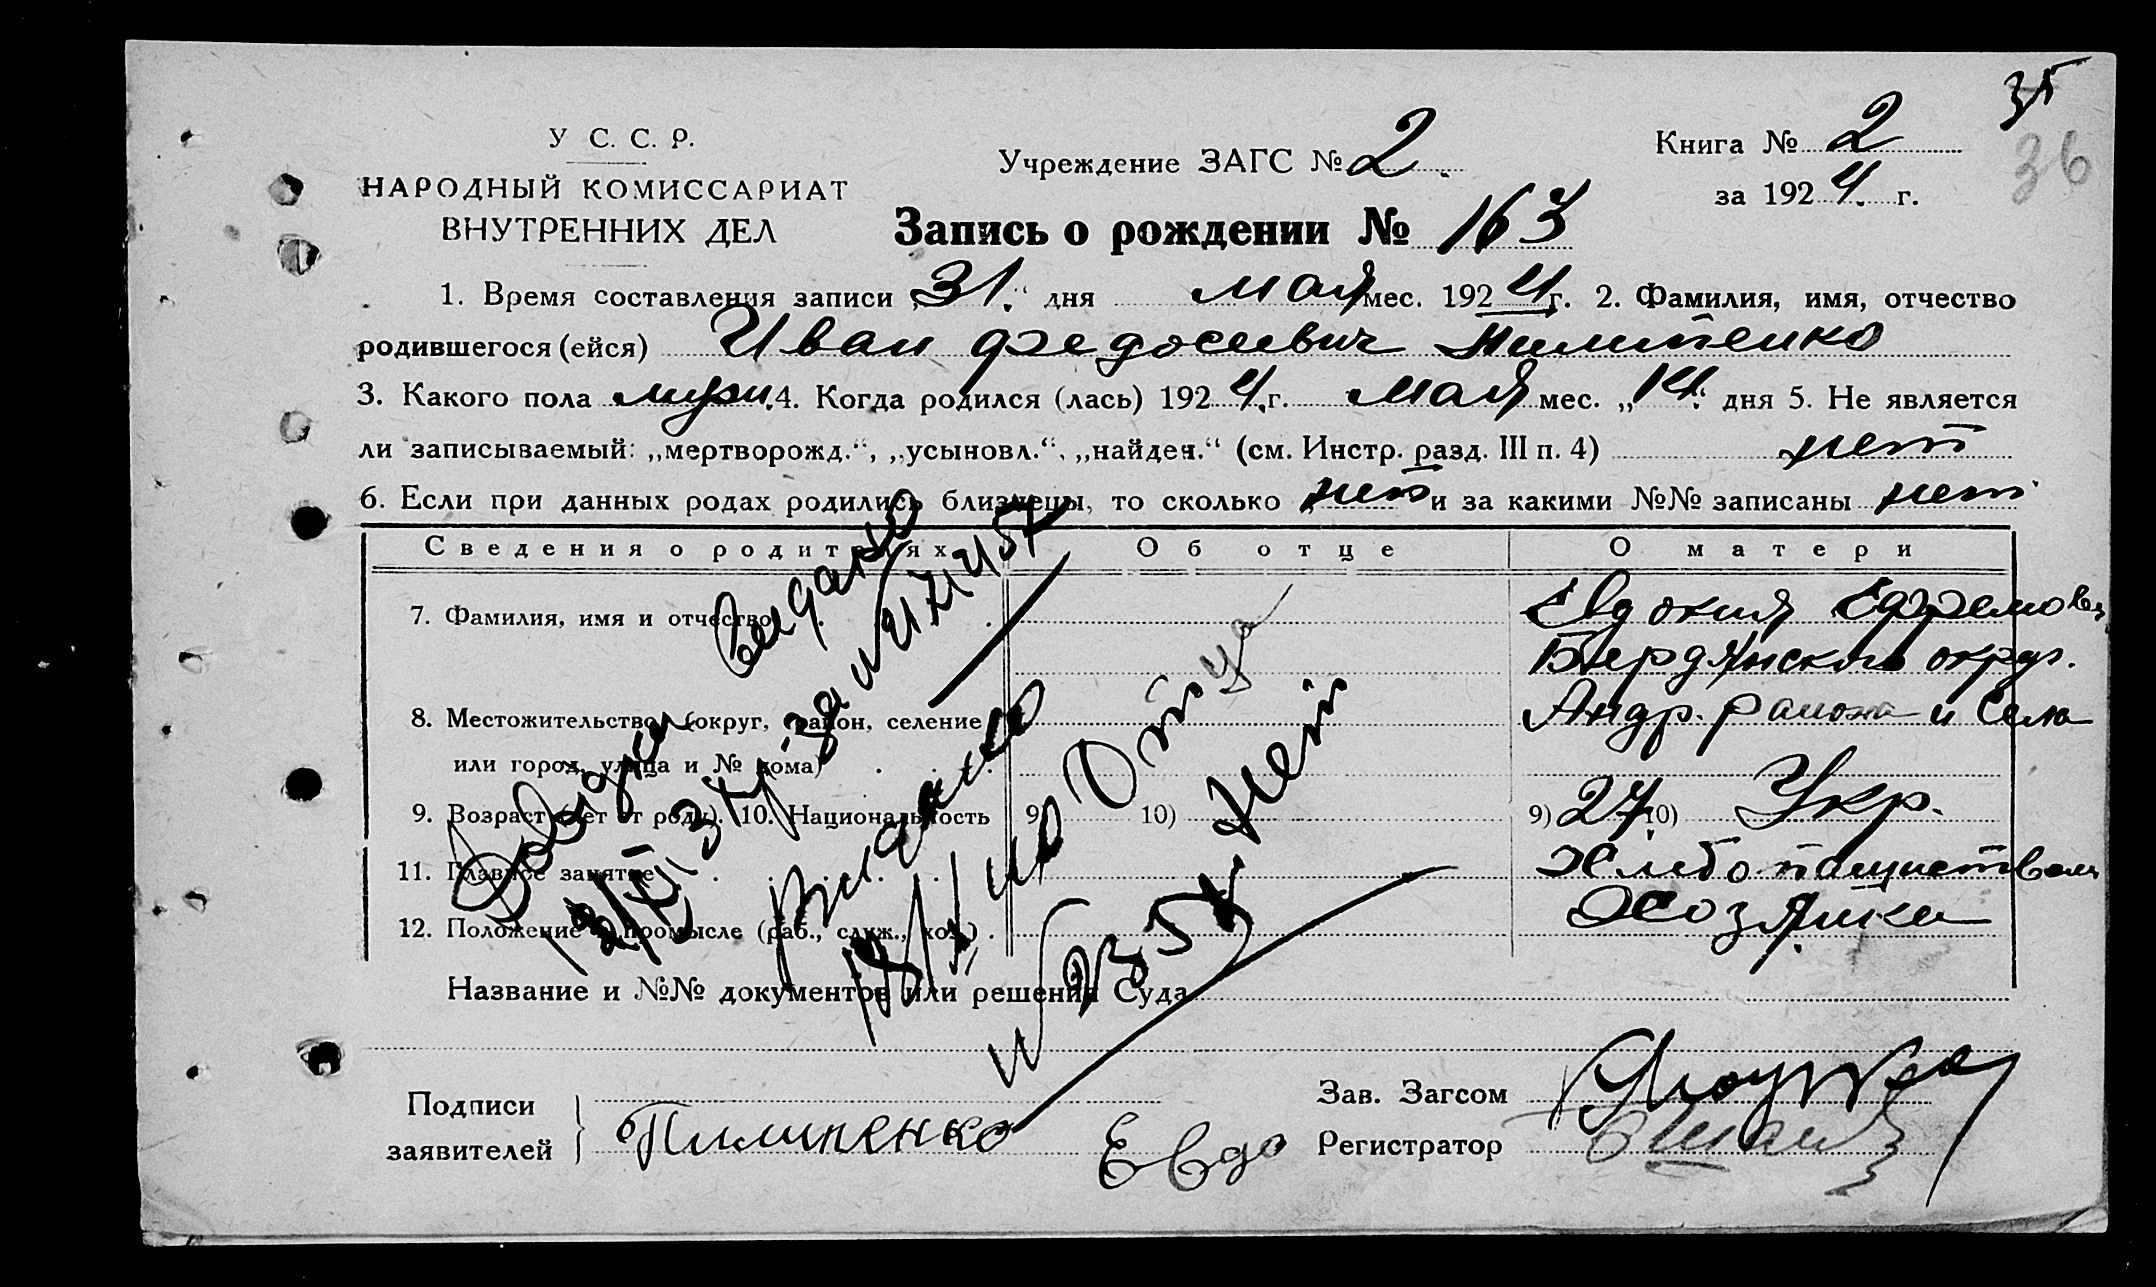 35
36
У. С. С. Р.
НАРОДНЫЙ КОМИССАРИАТ
ВНУТРЕННИХ ДЕЛ
Учреждение ЗАГС № 2.
Книга № 2
за 1924. г.
Запись о рождении № 163
1. Время составления записи „31.“ дня мая мес. 1924 г. 2. Фамилия, имя, отчество
родившегося (ейся) Иван Федосиевич Пилипенко
3. Какого пола муж. 4. Когда родился (лась) 1924. г. мая мес. „14.“ дня 5. Не является
ли записываемый: „мертворожд.“, „усыновл.“, „найден.“ (см. Инстр. разд. III п. 4) нет
6. Если при данных родах родились близнецы, то сколько нет и за какими №№ записаны нет
Сведения о родителях Об отце О матери
7. Фамилия, имя и отчество Евдокия Ефремовн
Бердянского округ.
8. Местожительство (округ, район, селение Андр. района и Села
или город, улица и № дома)
9. Возраст (лет от роду). 10. Национальность 9) 10) 9) 27 10) Укр.
11. Главное занятие Хлебопашеством
12. Положение в промысле (раб., служ., хоз.) Хозяйка
Отца
Нет
Название и №№ документов или решения Суда
Подписи
заявителей
Пилипенко Евдо
Зав. Загсом
Регистратор